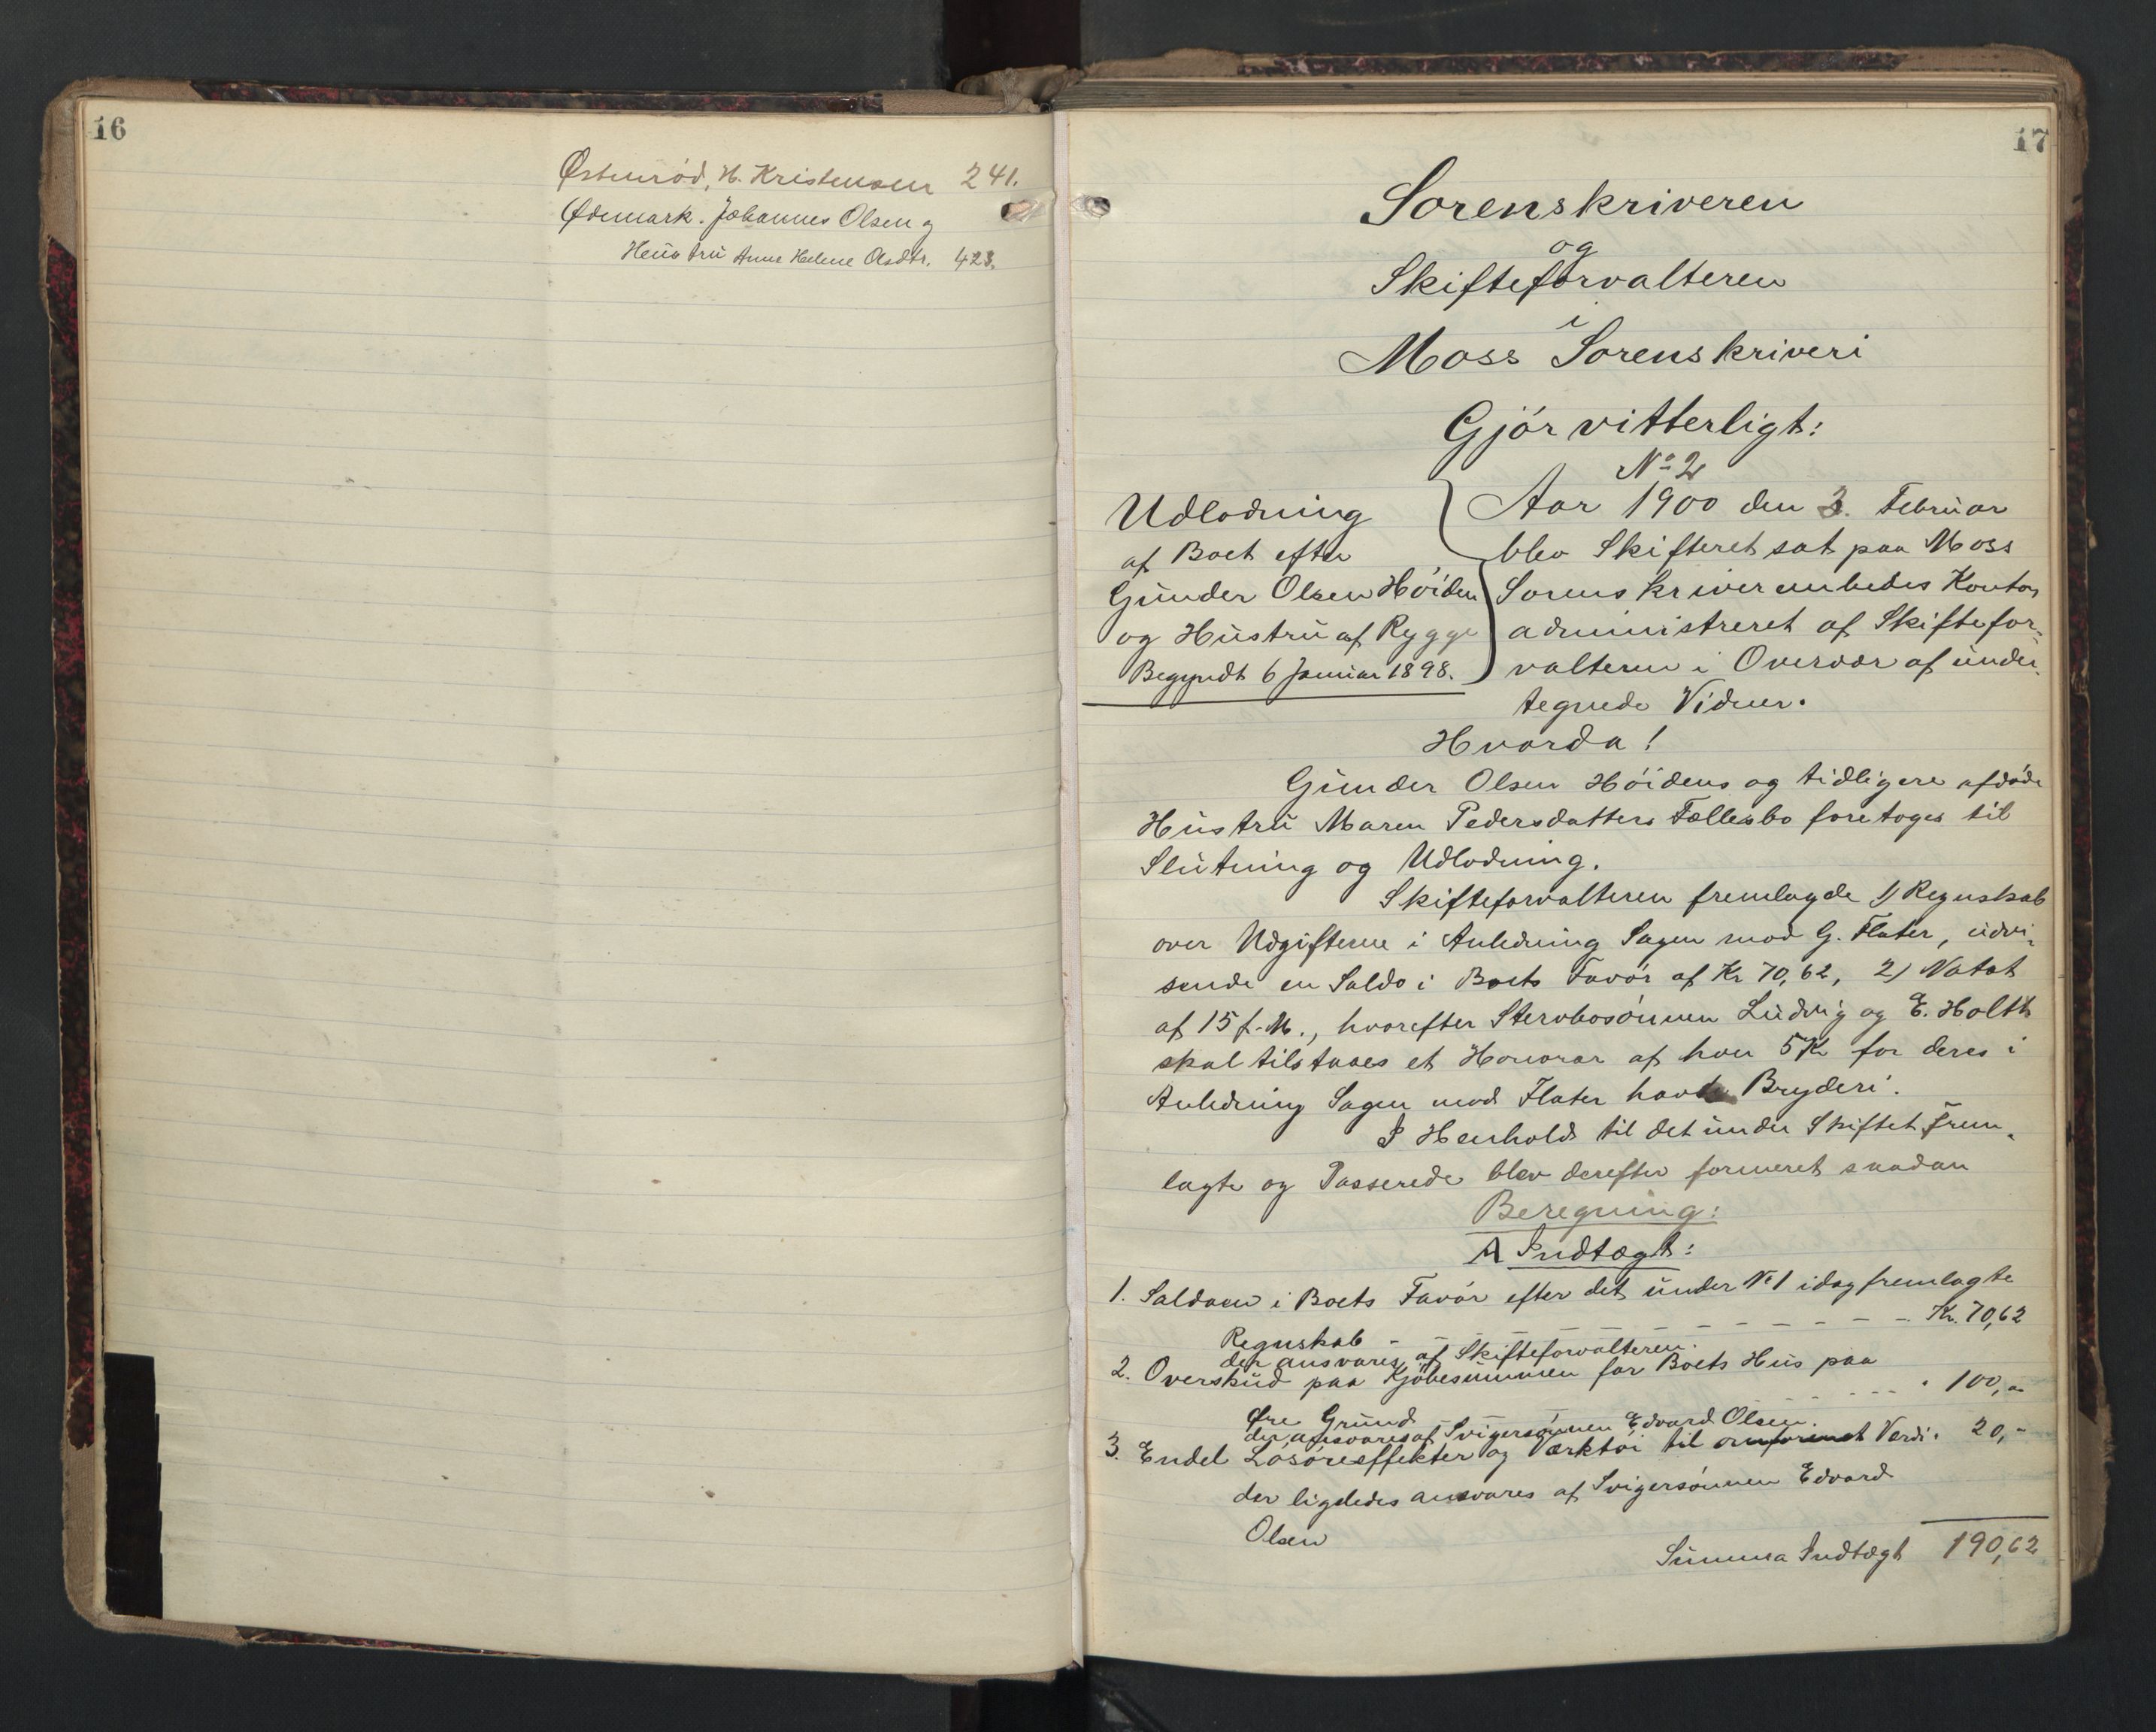 16
Østenrød, H. Kristensen 241.
Ødemark. Johannes Olsen og
Hustru Anne Helene Olsdtr. 423.
17
Sorenskriveren
og
Skifteforvalteren
i
Moss Sorenskriveri
Gjør vitterligt:
No 2
Udlodning
af Boet efter
Gunder Olsen Høiden
og Hustru af Rygge
Begyndt 6 Januar 1898.
Aar 1900 den 3. Februar
blev Skifteret sat paa Moss
Sorenskriverembedes Kontor
administreret af Skiftefor-
valteren i Overvær af under-
tegnede Vidner.
Hvorda!
Gunder Olsen Høidens og tidligere afdøde
Hustru Maren Pedersdatters Fællesbo foretoges til
Slutning og Udlodning.
Skifteforvalteren fremlagde 1) Regnskab
over Udgifterne i Anledning Sagen mod G. Flater, udvi-
sende en Saldo i Boets Favør af Kr 70,62, 2) Notat
af 15 f. M., hvorefter Stervbosønnen Ludvig og E. Holth
skal tilstaaes et Honorar af hver 5 Kr for deres i
Anledning Sagen mod Flater havte Bryderi.
I Henhold til det under Skiftet Frem-
lagte og Passerede blev derefter formeret saadan
Beregning:
A Indtægt:
1. Saldoen i Boets Favør efter det under No 1 idag fremlagte
Regnskab - - - - - - - - - - - Kr. 70,62
der ansvares af Skifteforvalteren.
2. Overskud paa Kjøbesummen for Boets Hus paa
Øre Grund - - - - - - - - - " 100,"
der ansvares af Svigersønnen Edvard Olsen.
3. Endel Løsøreeffekter og Værktøi til omforenet Værdi. 20,-
der ligeledes ansvares af Svigersønnen Edvard
Olsen
Summa Indtægt 190,62